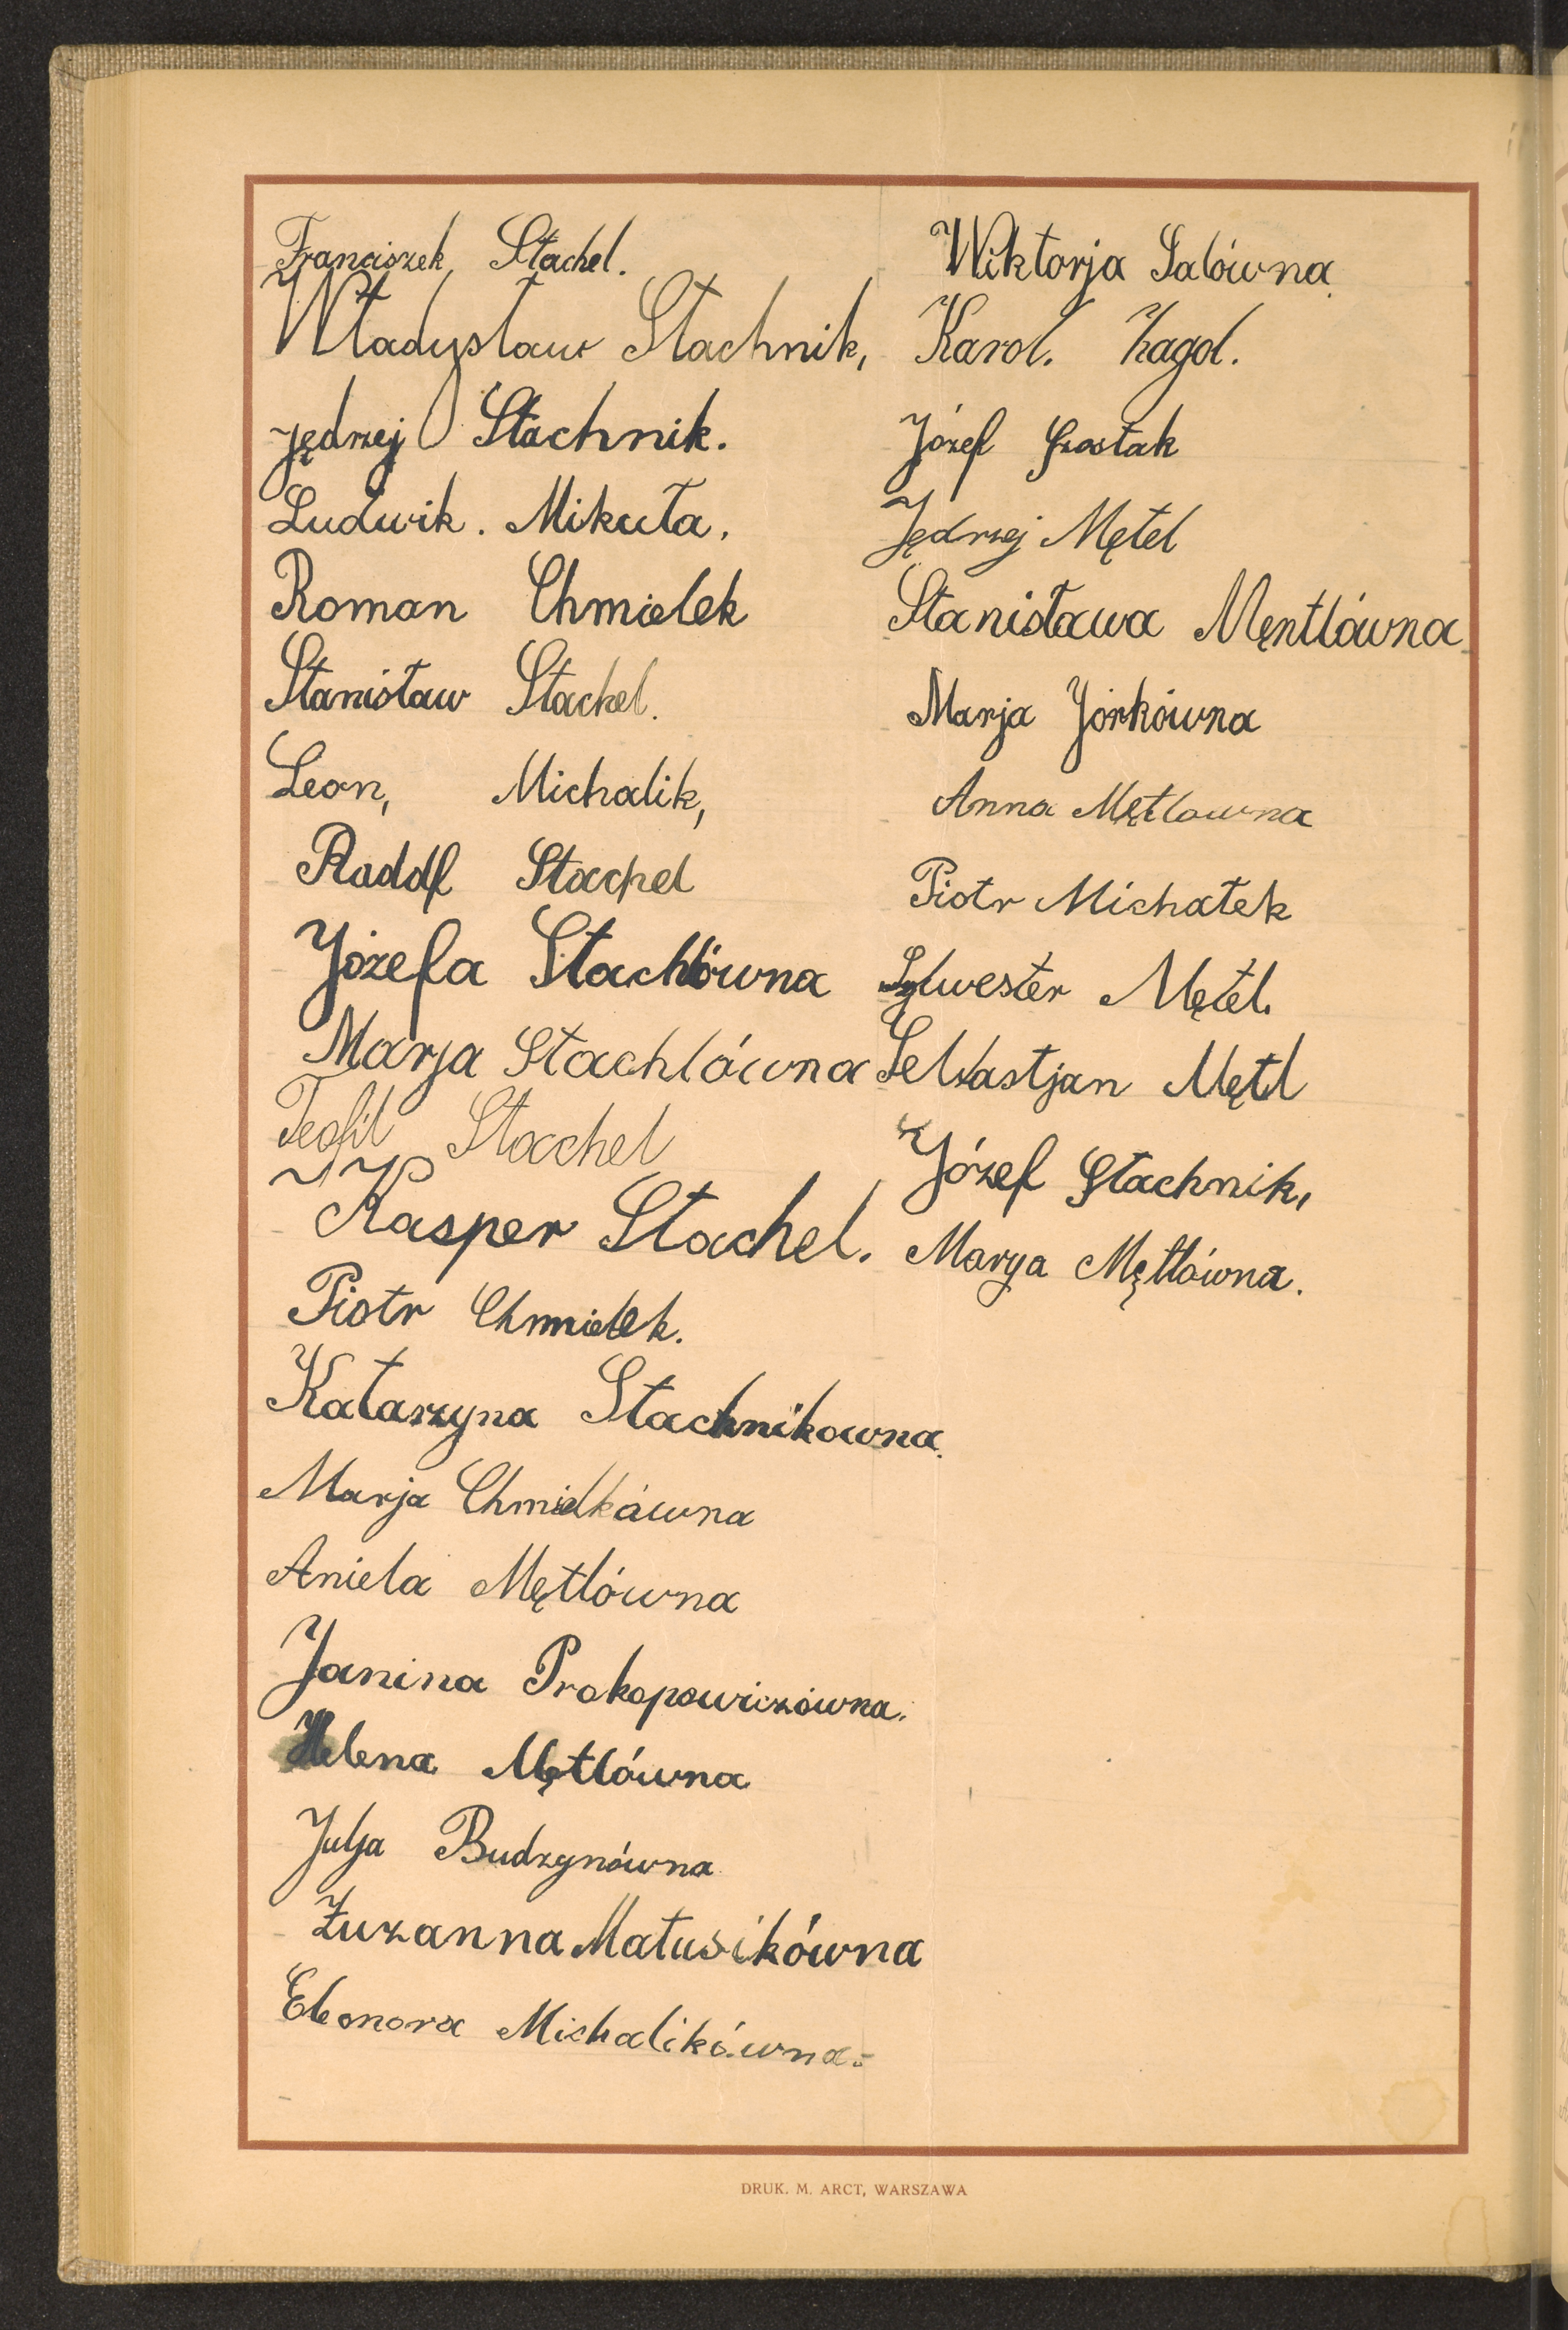 Franciszek Stachel.
Władysław Stachnik,
Jędrzej Stachnik.
Ludwik. Mikuła.
Roman Chmielek
Stanisław Stachel.
Leon, Michalik,
Stachel
Józefa Stachlówna
Marja Stachlówna
Teofil Stachel
Kasper Stachel.
Piotr Chmielek.
Katarzyna Stachnikowna.
Marja Chmielkówna
Aniela Mętlówna
Janina Prokopowiczówna.
Helena Mętlówna
Julja Budzynówna
Zuzanna Matusikówna
Eleonora Michalikówna.
Wiktorja Salówna.
Karol. Zagol.
Józef Szostak
Jędrzej Mętel
Stanisława Męntlówna
Marja Jórkówna
Anna Mętlowna
Piotr Michałek
Sylwester Mętel.
Sebastjan Mętl
Józef Stachnik,
Marya Mętlówna.
DRUK. M. ARCT, WARSZAWA